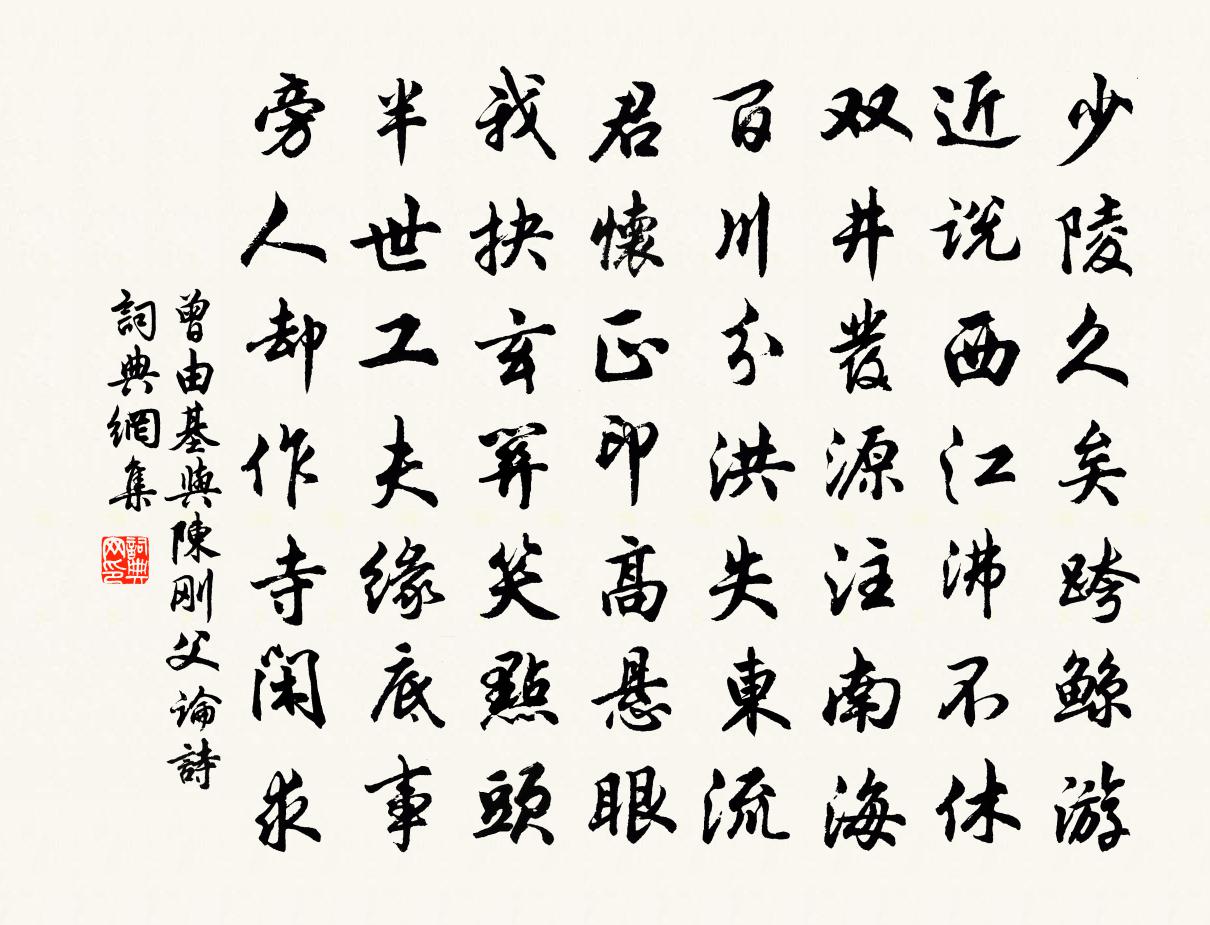 少陵久矣跨鲸游
近说西江沸不休
双井發源注南海
百川分洪失東流
君懷正印高悬眼
我抉玄関笑點頭
半世工夫缘底事
旁人却作寺閑求
曾由基與陳刚父論詩
詞典網集
詞典网印